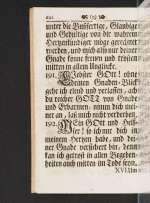 unter die Bußfertige, Gläubige
und Gedultige vor die wahren
Hertzensfündige möge gerechnet
werden, und mich allein deiner
Gnade könne freuen und trösten
mitten in allem Unglücke.
191. Liebster GOtt! ohne
deinen Gnaden-Blick
gehe ich elend und verlassen, ach
du reicher GOTT von Gnade
und Erbarmen, nimm dich mei-
ner an, laß mich nicht verderben.
192. Mein GOtt und Heil-
ser! so ich me dich in
meinem Hertzen habe, und dei-
ner Gnade versichert bin, denn
kan ich getrost in allen Begeben-
heiten auch mitten im Tode seyn.
XVI.